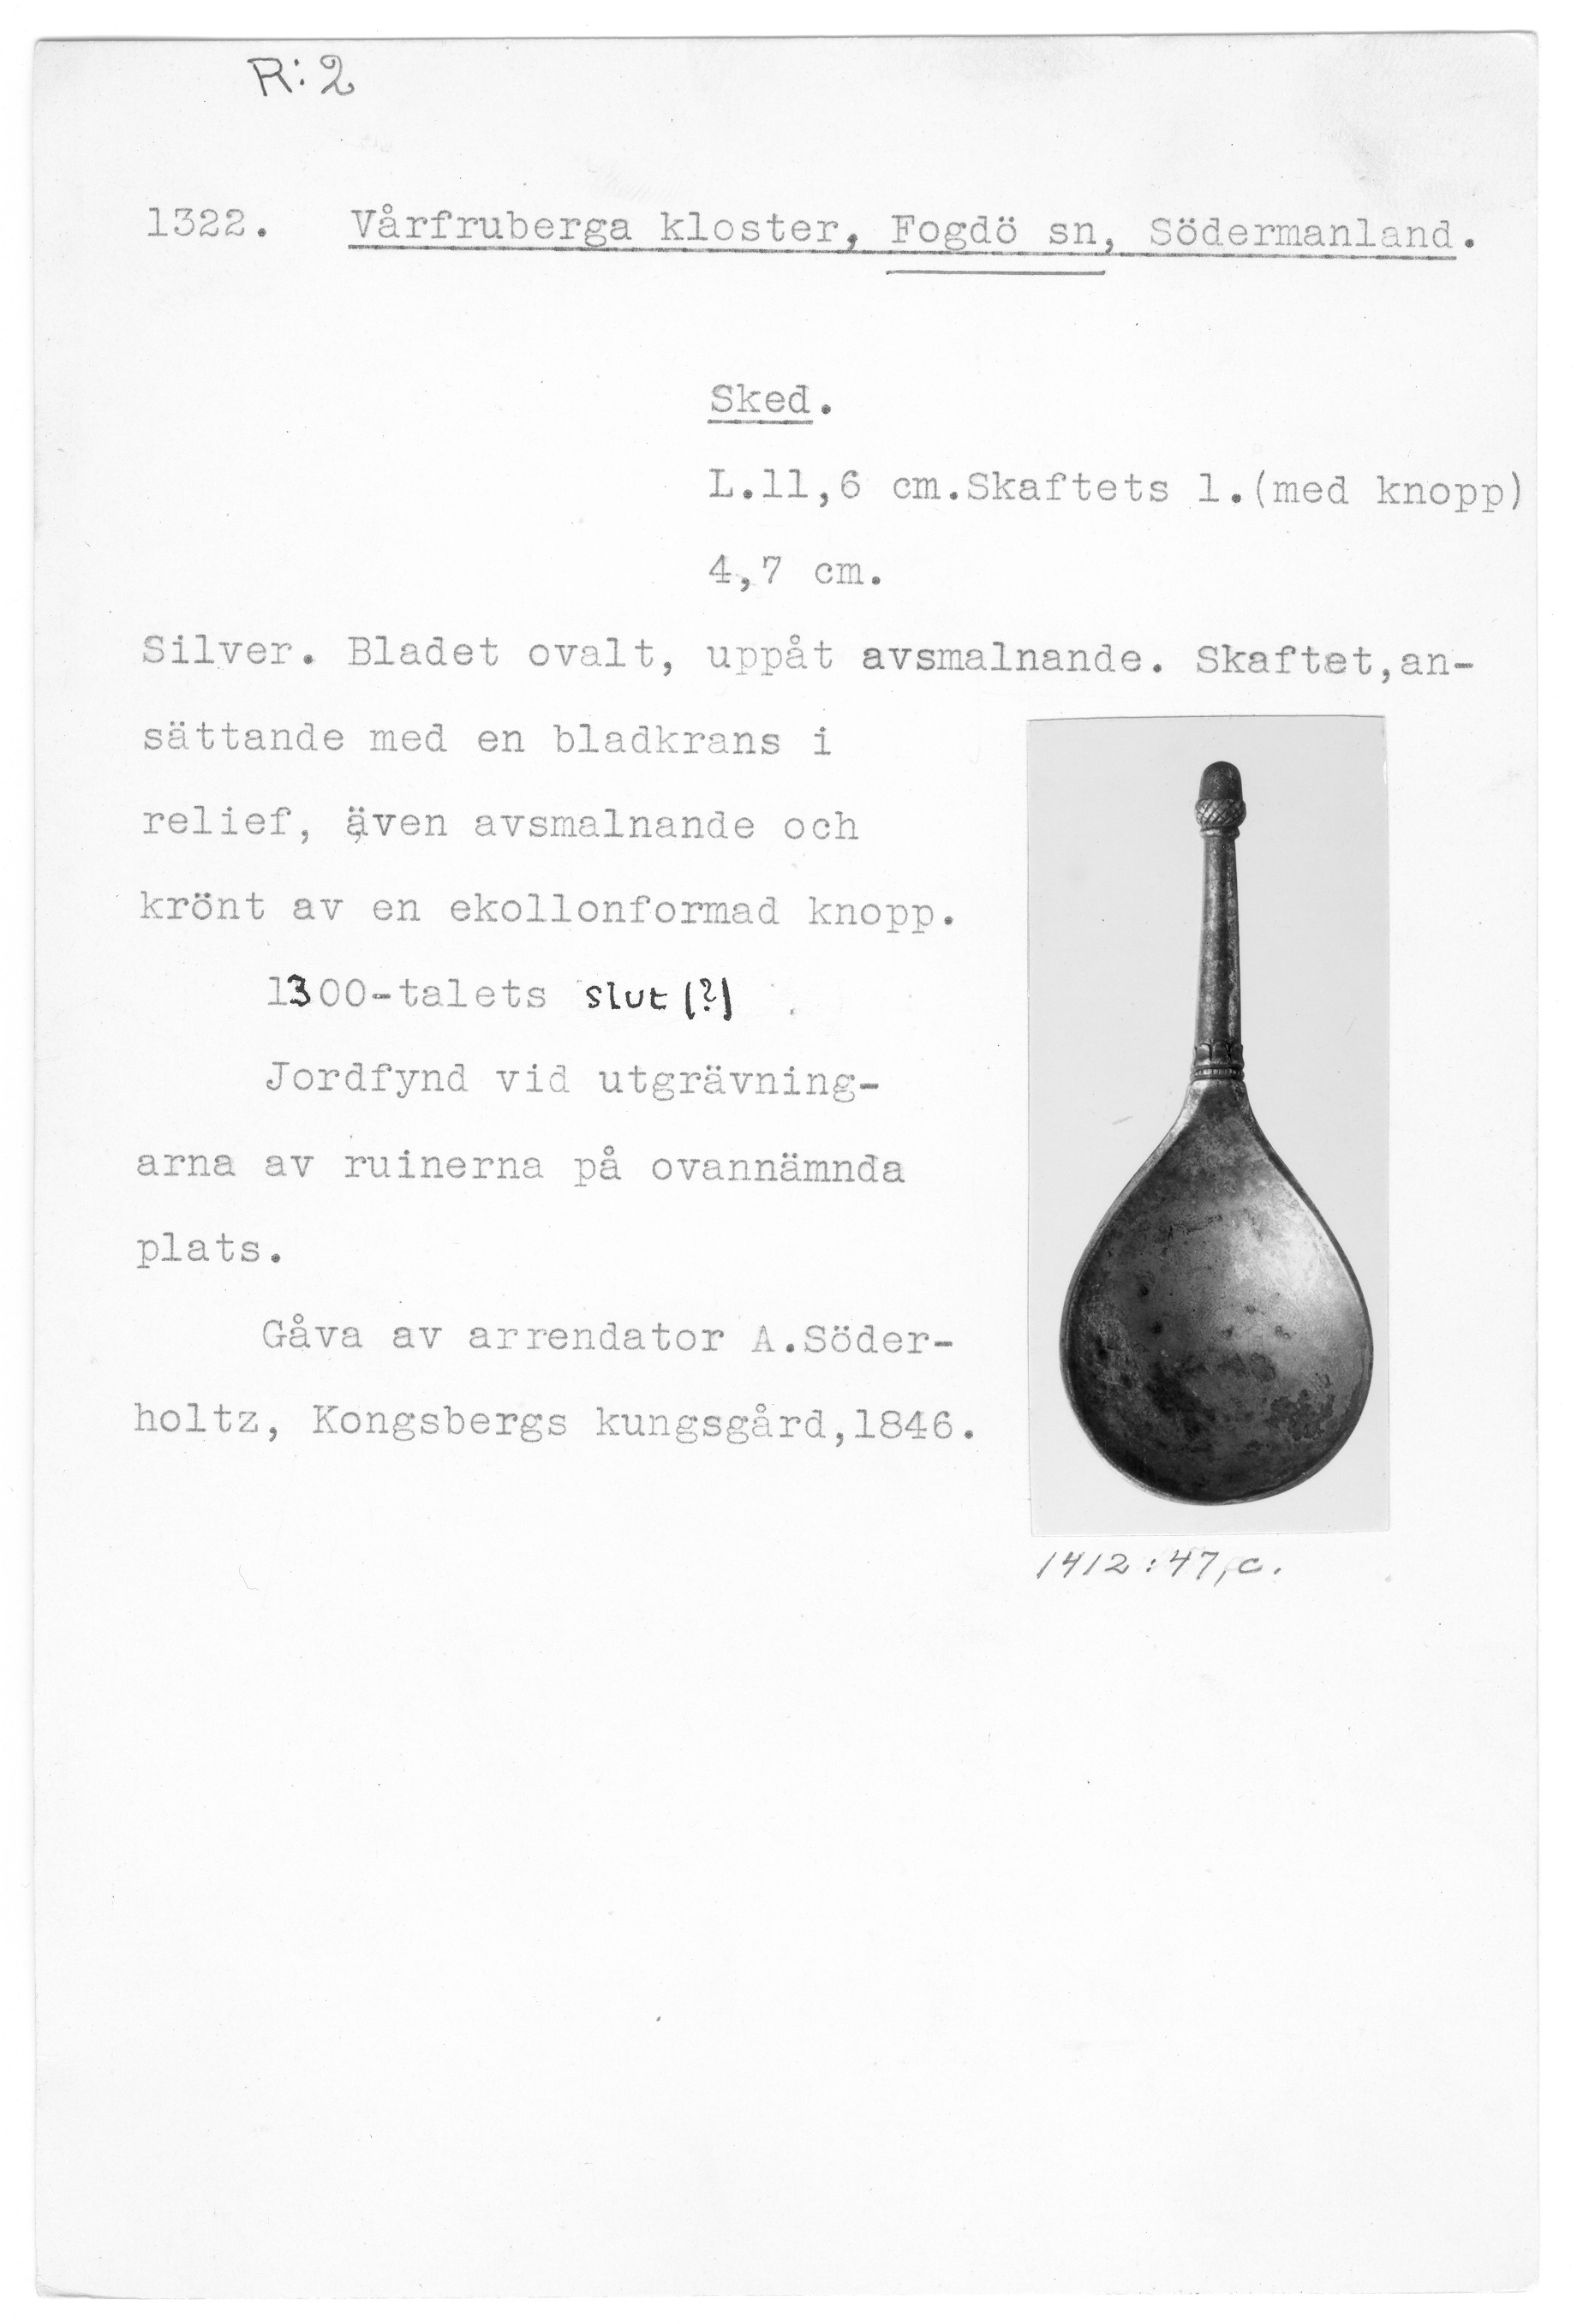 R:2
1322. Vårfruberga kloster, Fogdö sn, Södermanland.
Sked.
L.11,6 cm.Skaftets l.(med knopp)
4,7 cm.
Silver. Bladet ovalt, uppåt avsmalnande. Skaftet,an-
sättande med en bladkrans i
relief, även avsmalnande och
krönt av en ekollonformad knopp.
1300-talets slut (?)
Jordfynd vid utgrävning-
arna av ruinerna på ovannämnda
plats.
Gåva av arrendator A.Söder-
holtz, Kongsbergs kungsgård,1846.
1412:47,c.